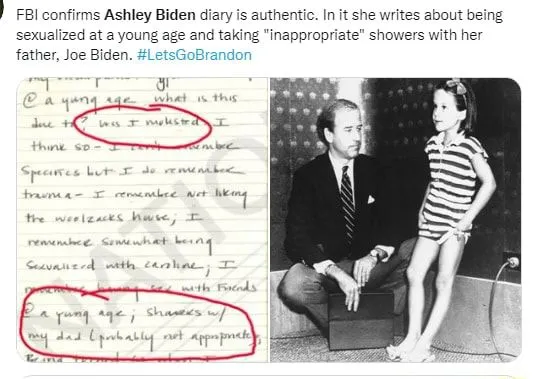 FBI confirms Ashley Biden diary is authentic. In it she writes about being
sexualized at a young age and taking "inappropriate" showers with her
father, Joe Biden. #LetsGoBrandon
@ a young age what is this
due to? Was I molested I
think so - I can't remember
specifics but I do remember
trauma - I remember not liking
the woolzacks house; I
remember somewhat being
sexualized with caroline; I
remember having sex with friends
@ a young age; showers w/
my dad (probably not appropriate)
NATION